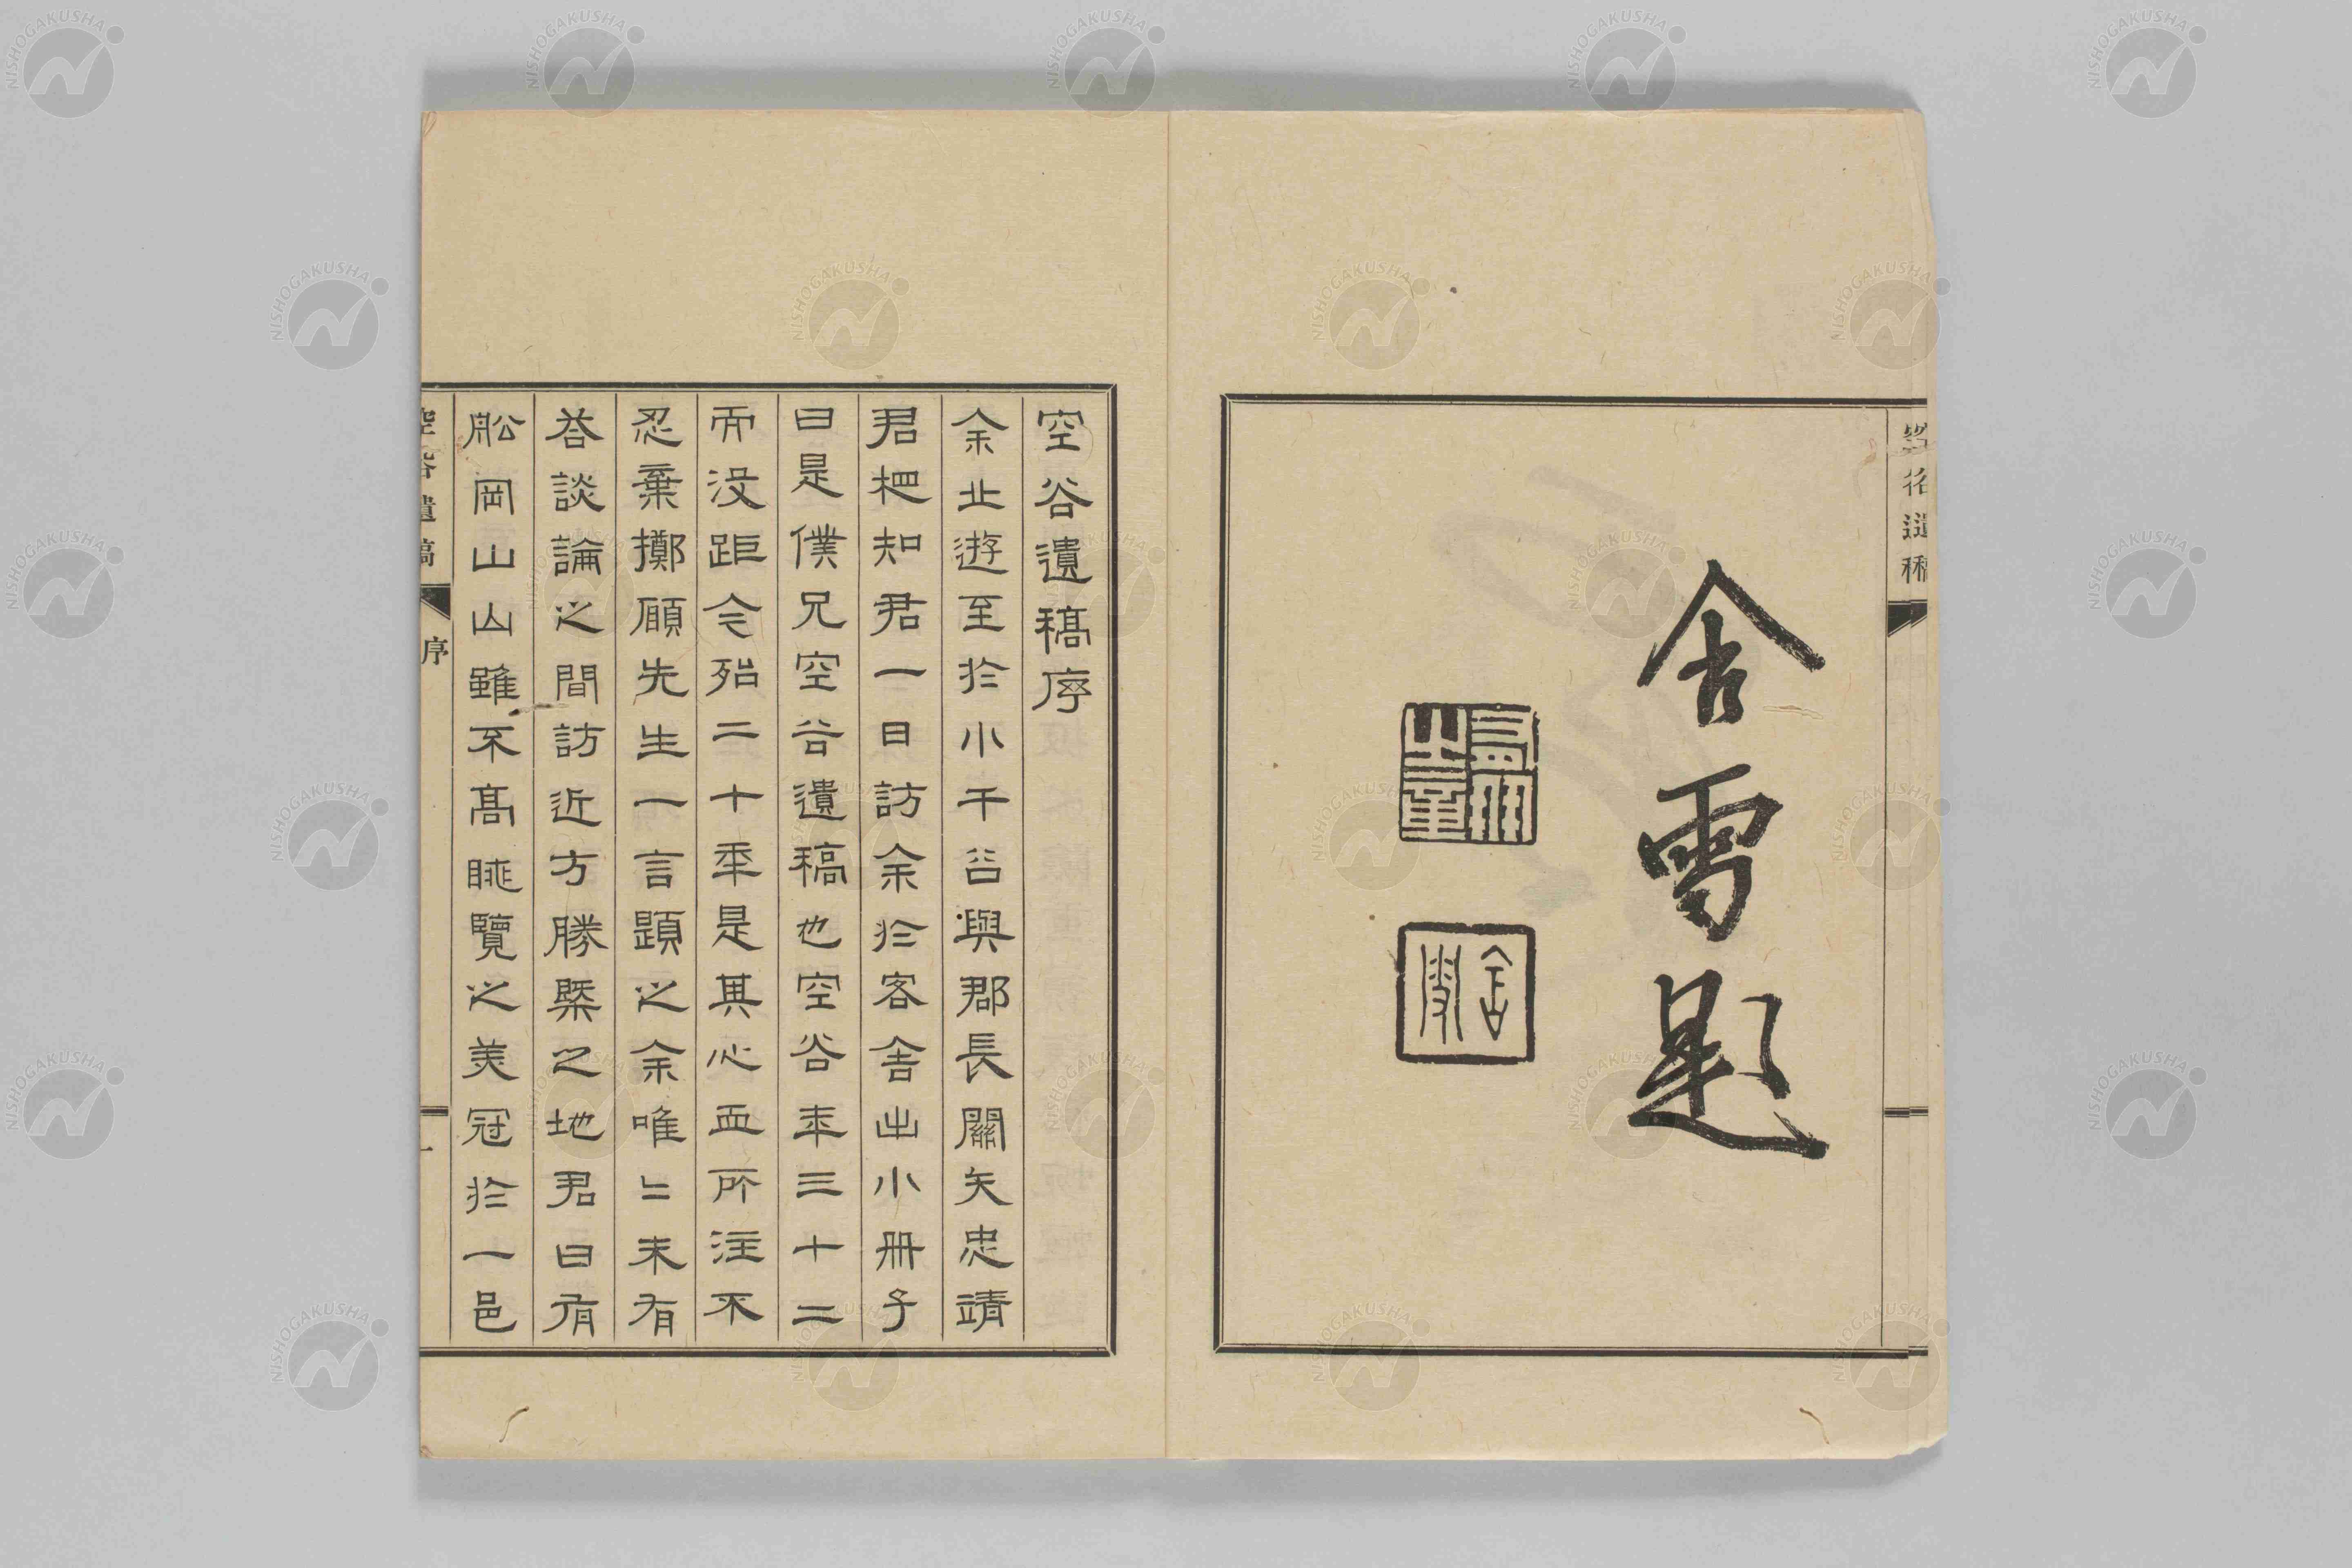 舍雪題
空谷遺稿序
余北遊至於小千谷與郡長關矢忠靖
君相知君一日訪余於客舍出小冊子
曰是僕兄空谷遺稿也空谷年三十二
而没距今殆二十年是其心血所注不
忍棄擲願先生一言題之余唯〻未有
答談論之間訪近方勝槩之地君曰有
舩岡山山雖不高眺覽之美冠於一邑
空谷遺稿
序
一
NISHOGAKUSHA